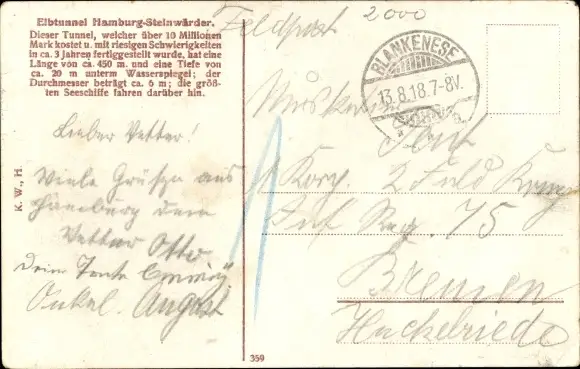 Elbtunnel Hamburg-Steinwärder.
Dieser Tunnel, welcher über 10 Millionen
Mark kostet u. mit riesigen Schwierigkeiten
in ca. 3 Jahren fertiggestellt wurde, hat eine
Länge von ca. 450 m. und eine Tiefe von
ca. 20 m unterm Wasserspiegel; der
Durchmesser beträgt ca. 6 m; die größ-
ten Seeschiffe fahren darüber hin.
Lieber Vetter!
Viele Grüße aus
Hamburg dem
Vetter Otto
Dein Tante
Onkel. August
K. W., H.
359
Feldpost
2000
BLANKENESE
13.8.18.7-8V.
Musketier
Korp. 2
Inf Reg. 75
Bremen
Huckelriede